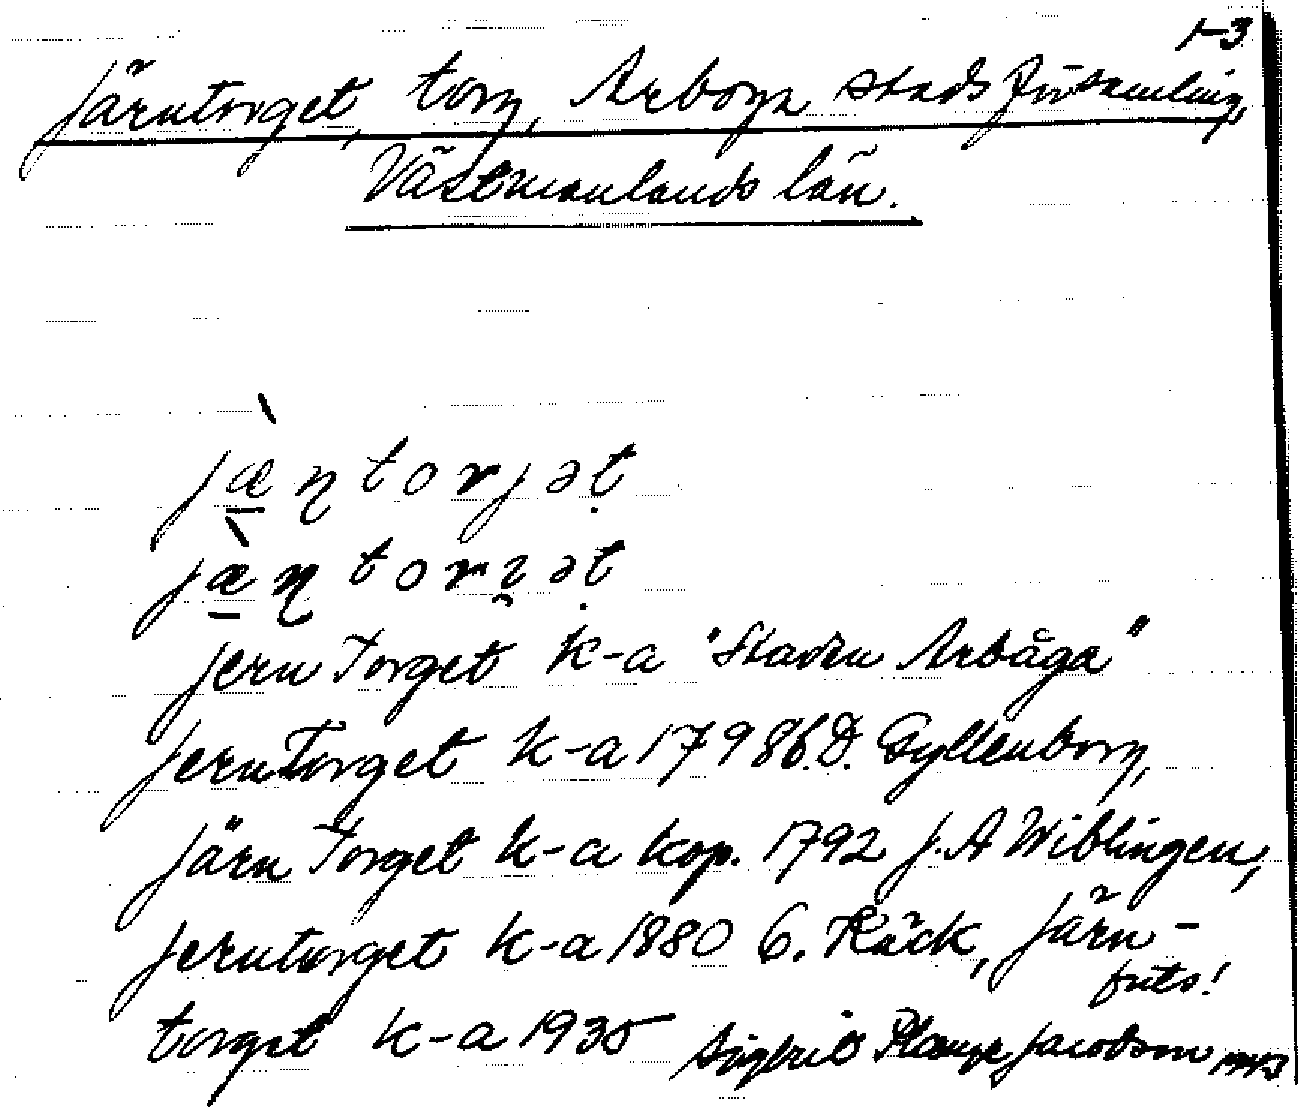 1-3
Järntorget, torg, Arboga stadsförsamling,
Västmanlands län.
jæ̠̀ɳtorjət̩
jæ̠̀ɳtorʒət̩
Jern Torget k-a "Staden Arbåga"
Jern Torget k-a 1798 Gyllenborg,
Järn Torget k-a kop. 1792 J. A Wiblingen,
Jerntorget k-a 1880 C. Räck, Järn-
torget k-a 1935
forts!
Jacobson